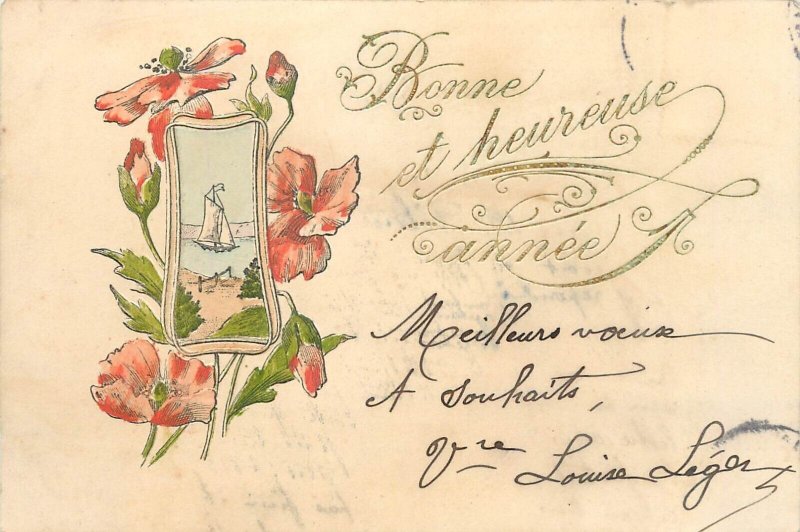 Bonne
et heureuse
année
Meilleurs vœux
et souhaits,
Vve Louise Léger